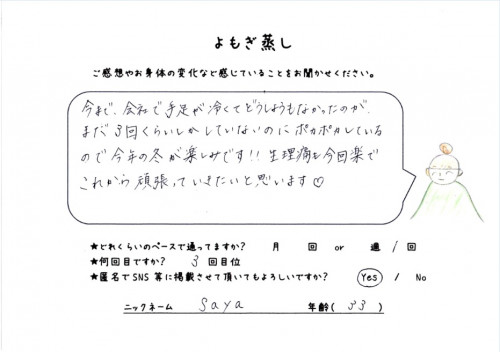 よもぎ蒸し
ご感想やお身体の変化など感じていることをお聞かせください。
今まで、会社で手足が冷くてどうしようもなかったのが、
まだ3回くらいしかしていないのにポカポカしている
ので今年の冬が楽しみです!! 生理痛も今回楽で
これから頑張っていきたいと思います♡
★どれくらいのペースで通ってますか? 月 回 or 週 1 回
★何回目ですか? 3 回目位
★匿名でSNS等に掲載させて頂いてもよろしいですか? Yes / No
ニックネーム saya 年齢( 33 )